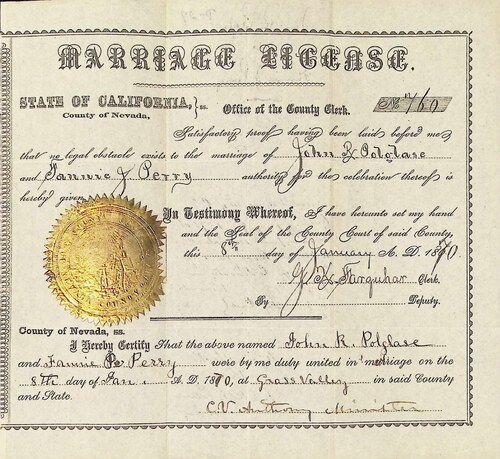 MARRIAGE LICENSE.
STATE OF CALIFORNIA, } ss. Office of the County Clerk. No. 760
County of Nevada,
Satisfactory proof having been laid before me
that no legal obstacle exists to the marriage of John R Polglase
and Fannie J Perry authority for the celebration thereof is
hereby given
In Testimony Whereof, I have hereunto set my hand
and the Seal of the County Court of said County,
this 8th day of January A. D. 1870.
Farquhar Clerk.
By Deputy.
County of Nevada, ss.
I Hereby Certify That the above named John R. Polglase
and Fannie Perry were by me duly united in marriage on the
8th day of Jan. A. D. 1870, at Grass Valley in said County
and State.
C. V. Anthony Minister